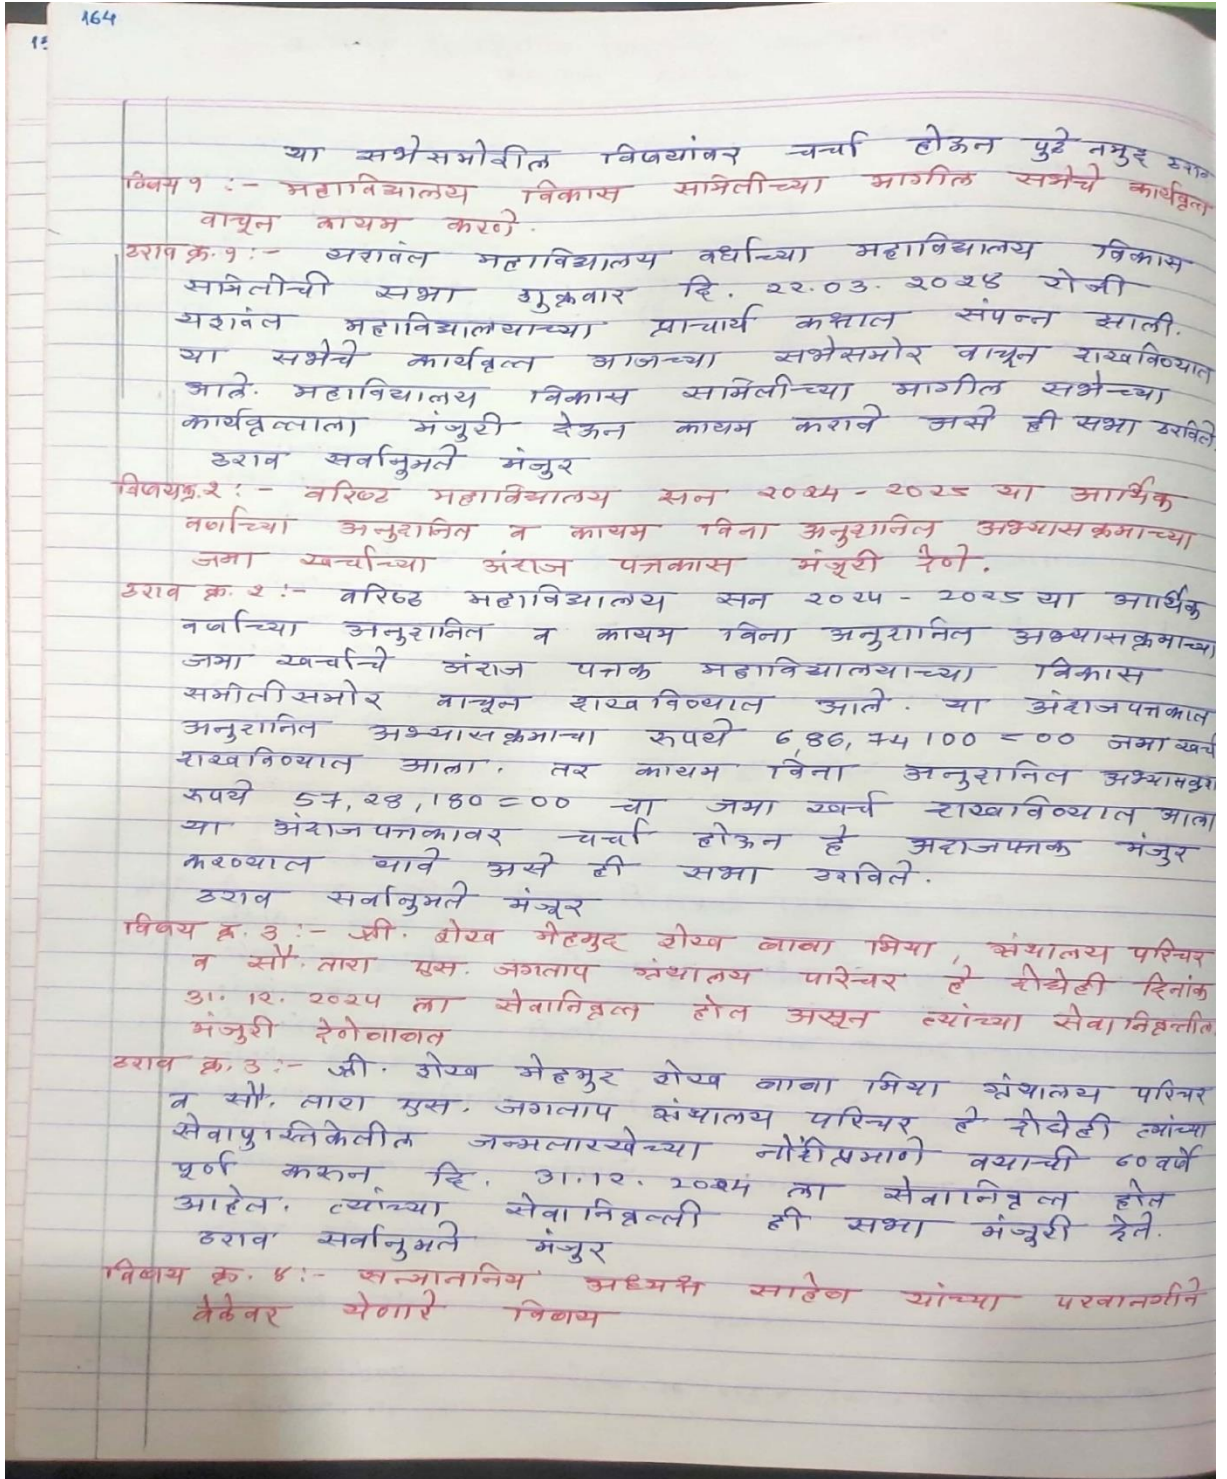 164
या सभेसमोरील विषयांवर चर्चा होऊन पुढे नमुद ठराव
विषय १ :- महाविद्यालय विकास समितीच्या मागील सभेचे कार्यवृत्त
वाचून कायम करणे.
ठराव क्र. १:- यशवंत महाविद्यालय वर्धाच्या महाविद्यालय विकास
समितीची सभा शुक्रवार दि. २२.०३.२०२४ रोजी
यशवंत महाविद्यालयाच्या प्राचार्य कक्षात संपन्न झाली.
या सभेचे कार्यवृत्त आजच्या सभेसमोर वाचून दाखविण्यात
आले. महाविद्यालय विकास समितीच्या मागील सभेच्या
कार्यवृत्ताला मंजुरी देऊन कायम करावे असे ही सभा ठरविते
ठराव सर्वानुमते मंजुर
विषय क्र. २ :- वरिष्ठ महाविद्यालय सन २०२४ - २०२५ या आर्थिक
वर्षाच्या अनुदानित व कायम विना अनुदानित अभ्यासक्रमाच्या
जमा खर्चाच्या अंदाज पत्रकास मंजूरी देणे.
ठराव क्र. २ :- वरिष्ठ महाविद्यालय सन २०२४ - २०२५ या आर्थिक
वर्षाच्या अनुदानित व कायम विना अनुदानित अभ्यासक्रमाच्या
जमा खर्चाचे अंदाज पत्रक महाविद्यालयाच्या विकास
समीतीसमोर वाचून दाखविण्यात आले. या अंदाजपत्रकात
अनुदानित अभ्यासक्रमाचा रुपये 6,86,74100=00 जमा खर्च
दाखविण्यात आला. तर कायम विना अनुदानित अभ्यासक्रम
रुपये 57,28,180=00 चा जमा खर्च दाखविण्यात आला
या अंदाजपत्रकावर चर्चा होऊन हे अदाजपत्रक मंजुर
करण्यात यावे असे ही सभा ठरविते.
ठराव सर्वानुमते मंजूर
विषय क्र. 3 :- श्री. शेख मेहमुद शेख बाबा मिया, ग्रंथालय परिचर
व सौ. तारा एस. जगताप ग्रंथालय परिचर हे दोघेही दिनांक
३१.१२.२०२४ ला सेवानिवृत्त होत असून त्यांच्या सेवानिवृत्तीला
मंजुरी देणेबाबत
ठराव क्र. ३ :- श्री. शेख मेहमुद शेख बाबा मिया ग्रंथालय परिचर
व सौ. तारा एस. जगताप ग्रंथालय परिचर हे दोघेही त्यांच्या
सेवापुस्तिकेतील जन्मतारखेच्या नोंदीप्रमाणे वयाची ६० वर्षे
पूर्ण करून दि. ३१.१२.२०२४ ला सेवानिवृत्त होत
आहेत. त्यांच्या सेवानिवृत्ती ही सभा मंजुरी देते.
ठराव सर्वानुमते मंजुर
विषय क्र. ४ :- सन्मानानिय अध्यक्ष साहेब यांच्या परवानगीने
वेळेवर येणारे विषय